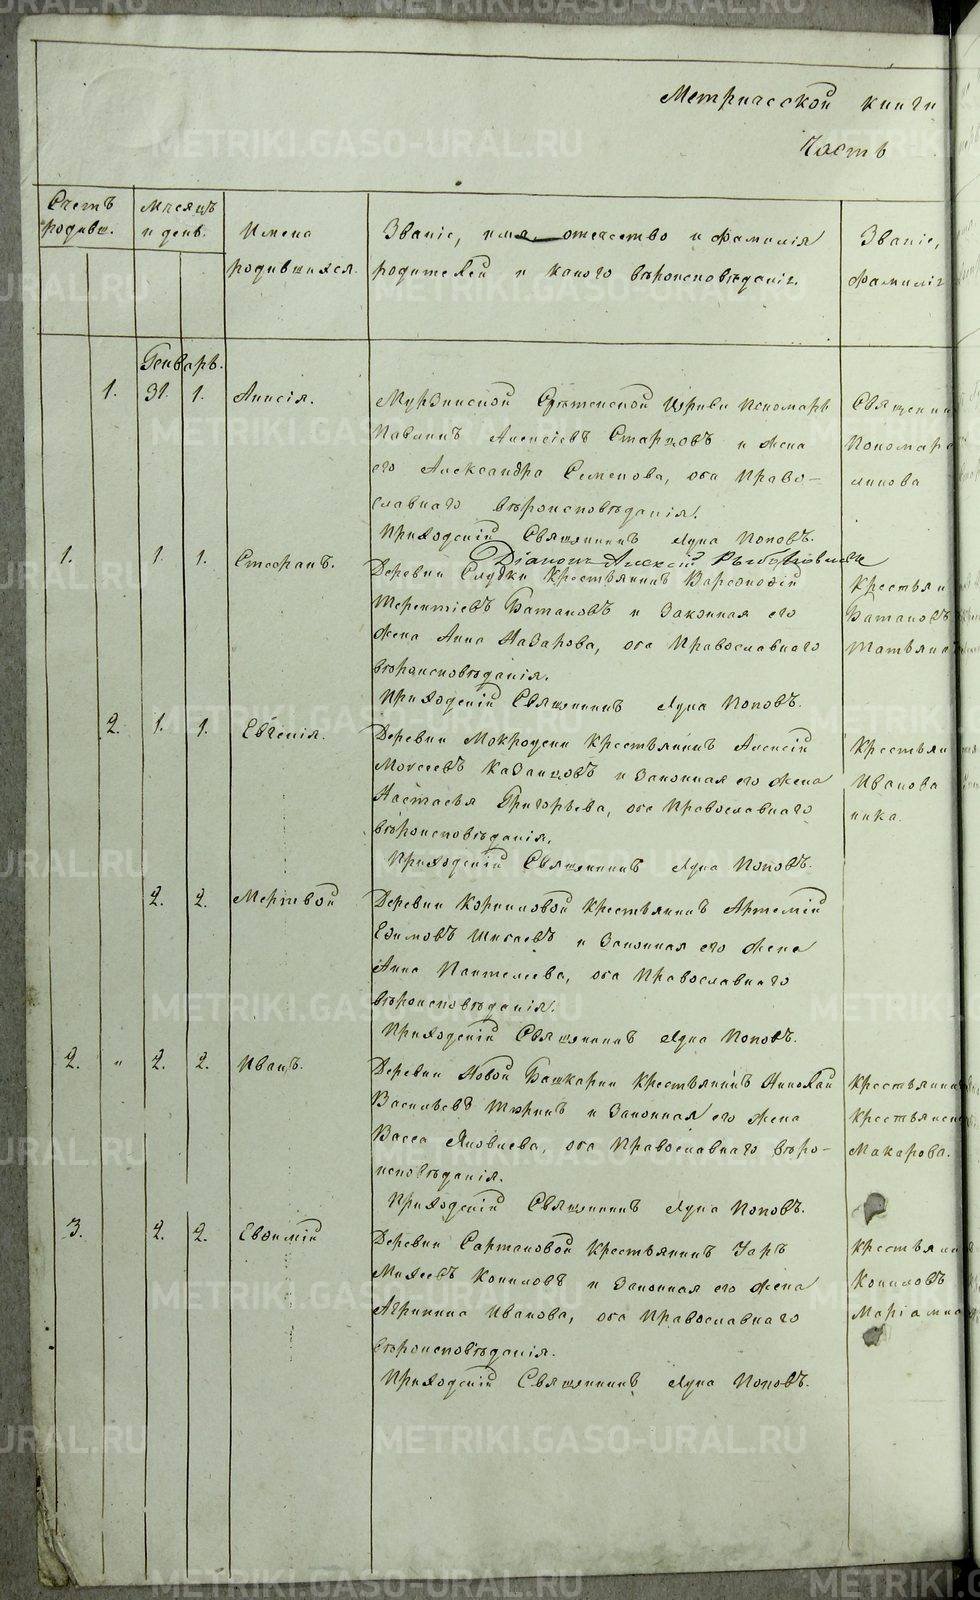 Метрической книги
Часть
Счетъ родивш.
Мѣсяцъ и день.
Имена родившихся.
Званіе, имя, отчество и фамилія
родителей и какого вѣроисповѣданія.
Званіе,
фамилія
Генварь.
1. 31. 1. Анисія.
Мурзинской Срѣтенской Церкви Пономарь
Павлинъ Алексіевъ Старцовъ и жена
его Александра Семенова, оба Право-
славнаго вѣроисповѣданія.
Приходскій Священникъ Лука Поповъ.
Діаконъ Алексій
Священни
Пономаре
линова
1. 1. 1. Стефанъ.
Деревни Слудки Крестьянинъ Варсонофій
Терентіевъ Батаковъ и законная его
жена Анна Назарова, оба Православнаго
вѣроисповѣданія.
Приходскій Священникъ Лука Поповъ.
Крестьян
Батаковъ
Татьяна
2. 1. 1. Евгенія.
Деревни Мокроуски Крестьянинъ Алексій
Моисеевъ Казанцовъ и законная его жена
Настасья Григорьева, оба Православнаго
вѣроисповѣданія.
Приходскій Священникъ Лука Поповъ.
Крестьян
Иванова
ника.
2. 2. Мертвой
Деревни Корниловой Крестьянинъ Артемій
Ефимовъ Шигаевъ и законная его жена
Анна Пантелеева, оба Православнаго
вѣроисповѣданія.
Приходскій Священникъ Лука Поповъ.
2. " 2. 2. Иванъ.
Деревни Новой Башкарки Крестьянинъ Николай
Васильевъ Тюринъ и законная его жена
Васса Яковлева, оба Православнаго вѣро-
исповѣданія.
Приходскій Священникъ Лука Поповъ.
Крестьянинъ
Крестьянск
Макарова.
3. 2. 2. Евфимій
Деревни Сартаковой Крестьянинъ Уаръ
Михеевъ Копыловъ и законная его жена
Агрипина Иванова, оба Православнаго
вѣроисповѣданія.
Приходскій Священникъ Лука Поповъ.
Крестьяни
Копыловъ
Маріамна
METRIKI.GASO-URAL.RU